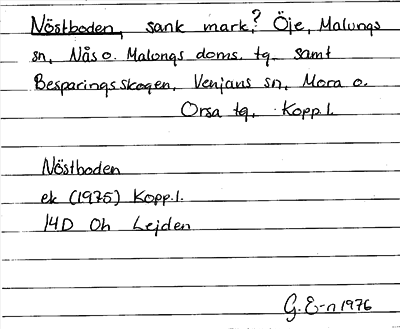 Nöstboden, sank mark? Öje, Malungs
sn, Nås o. Malungs doms. tg. samt
Besparingsskogen, Venjans sn, Mora o.
Orsa tg, Kopp.l.
Nöstboden
ek (1975) Kopp.l.
14D Oh Lejden
G. E-n 1976